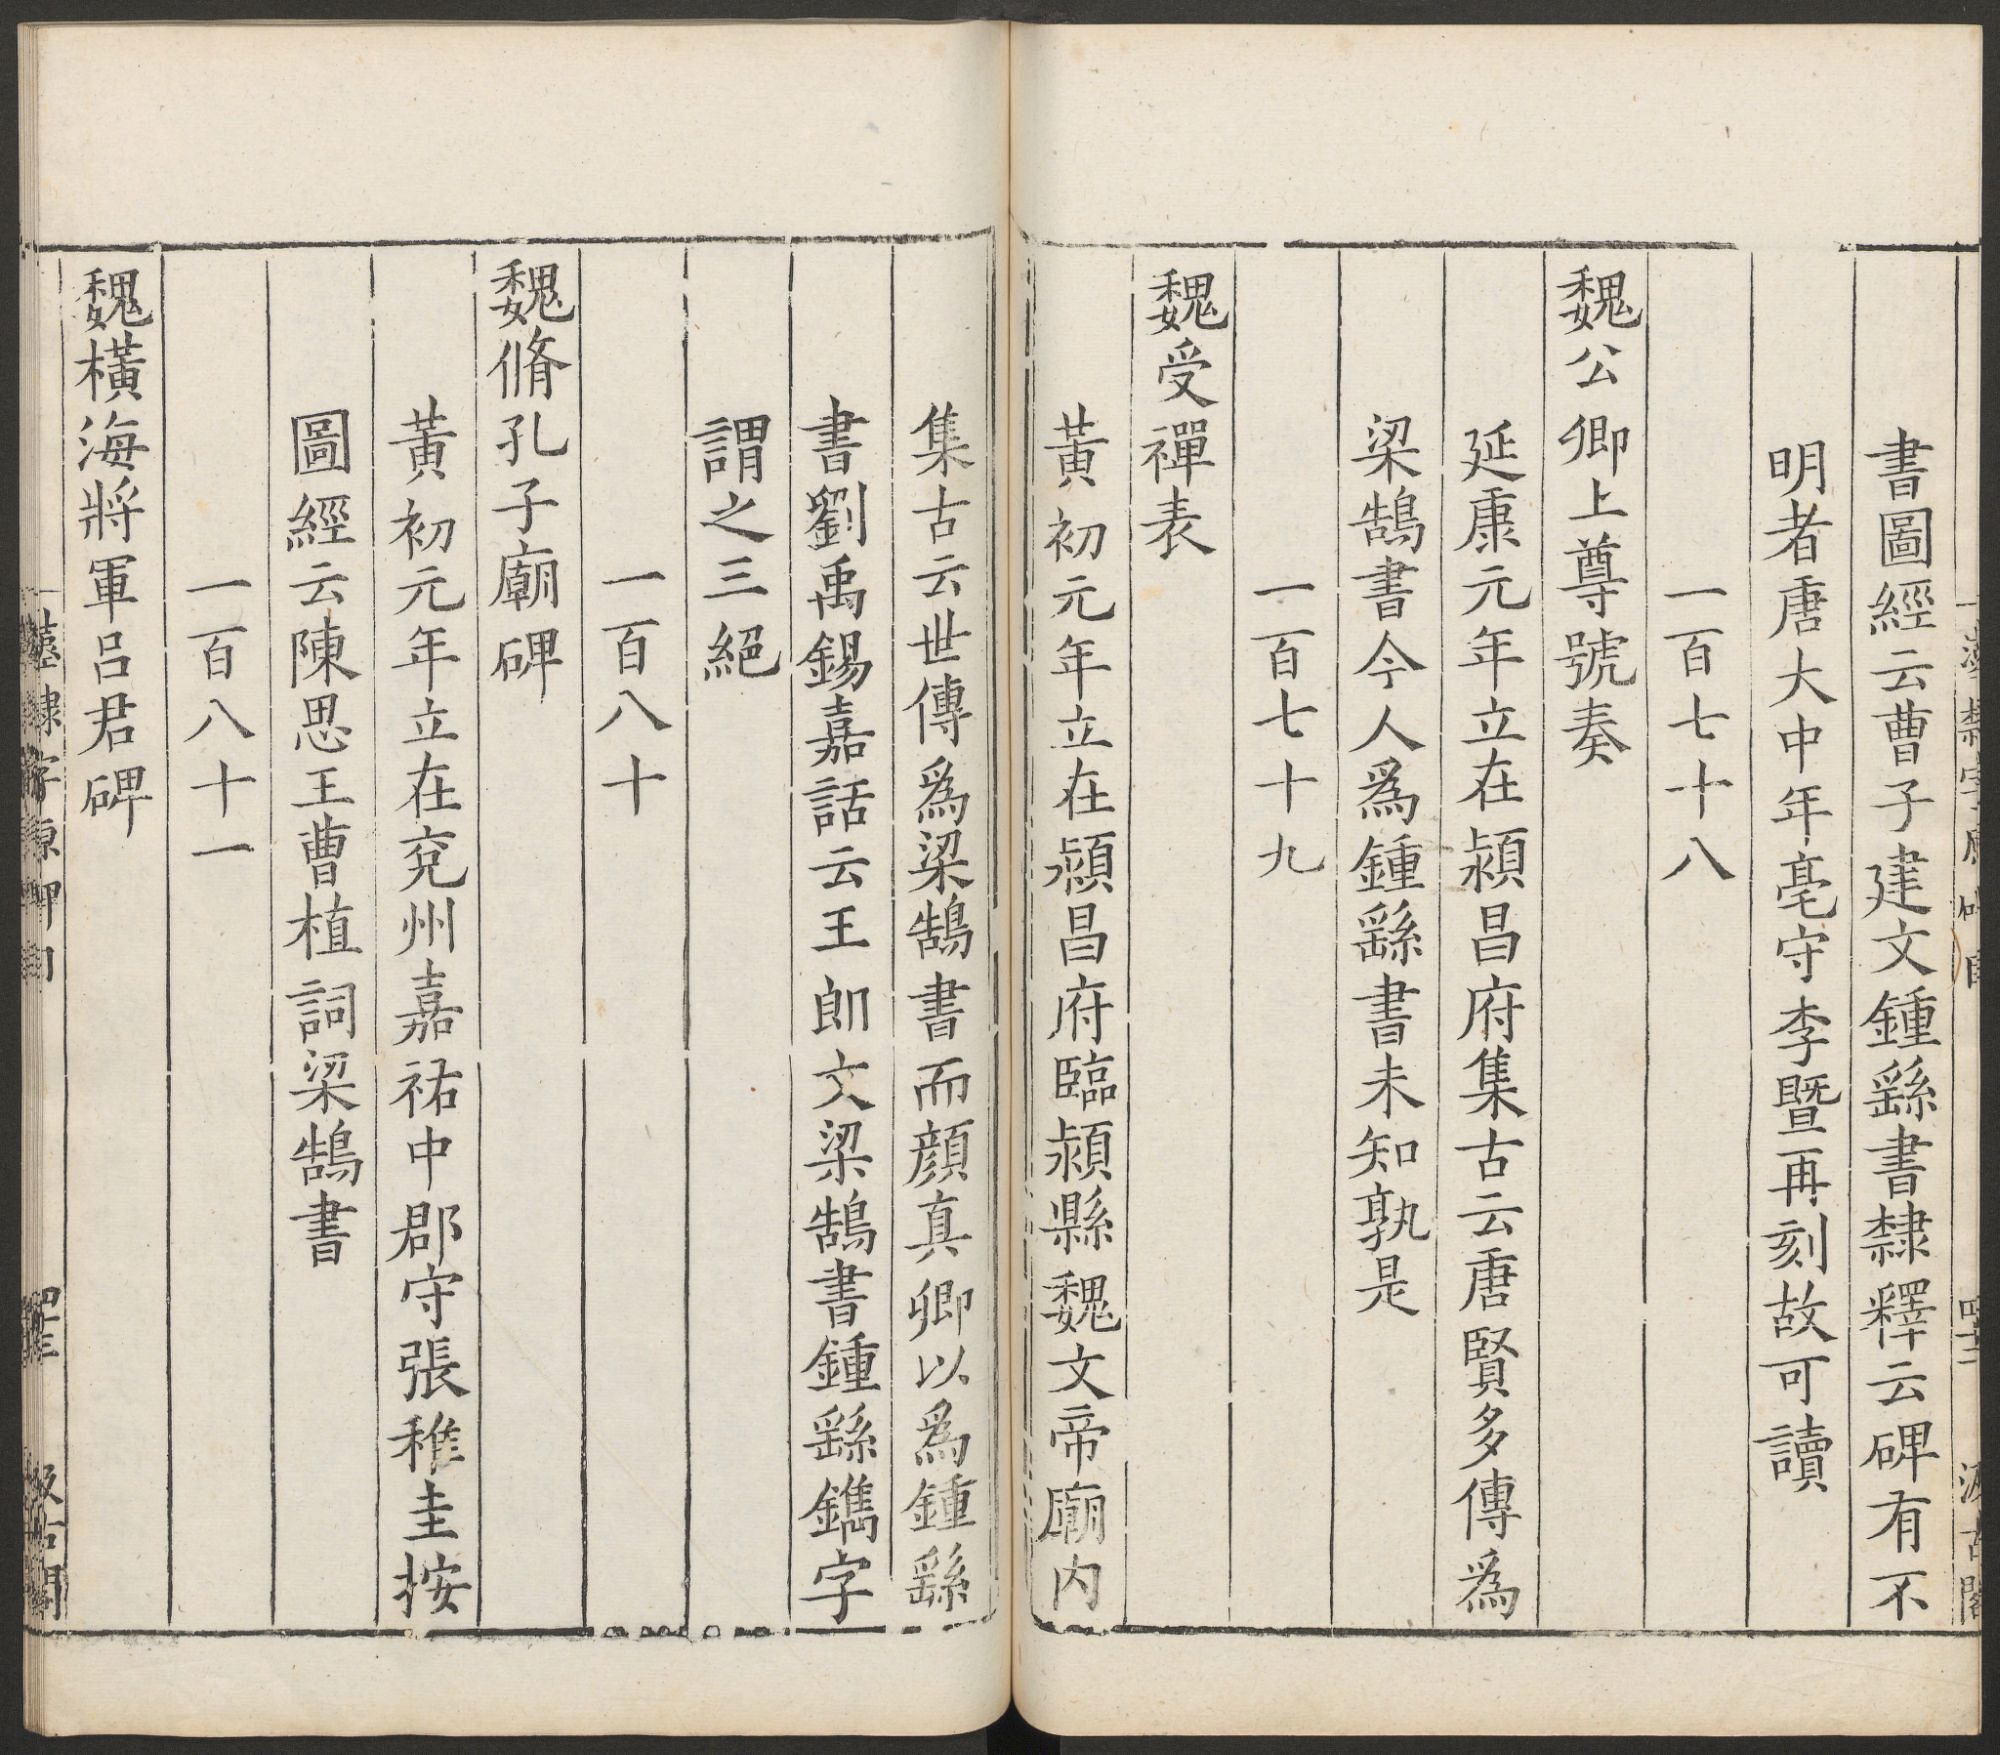 書圖經云曹子建文鍾繇書隸釋云碑有不
明者唐大中年亳守李暨再刻故可讀
一百七十八
魏公卿上尊號奏
延康元年立在潁昌府集古云唐賢多傳為
梁鵠書今人為鍾繇書未知孰是
一百七十九
魏受禪表
黃初元年立在潁昌府臨潁縣魏文帝廟內
集古云世傳為梁鵠書而顔真卿以為鍾繇
書劉禹錫嘉話云王郎文梁鵠書鍾繇鐫字
謂之三絕
一百八十
魏脩孔子廟碑
黃初元年立在兗州嘉祐中郡守張稚圭按
圖經云陳思王曹植詞梁鵠書
一百八十一
魏橫海將軍呂君碑